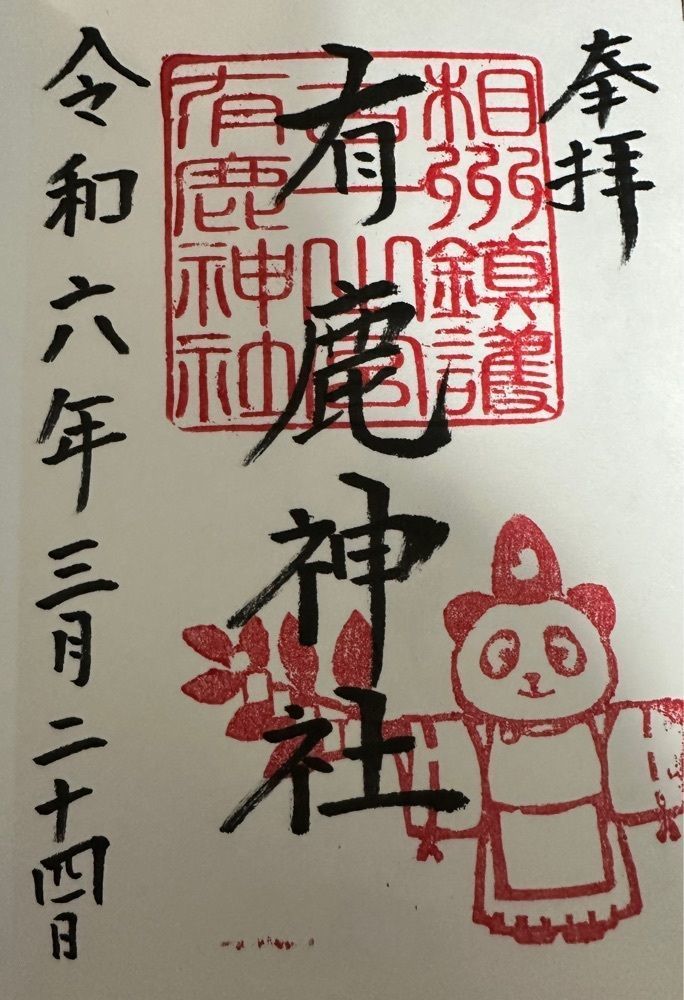 奉拝
相州鎮護
有鹿神社
有鹿神社
令和六年三月二十四日